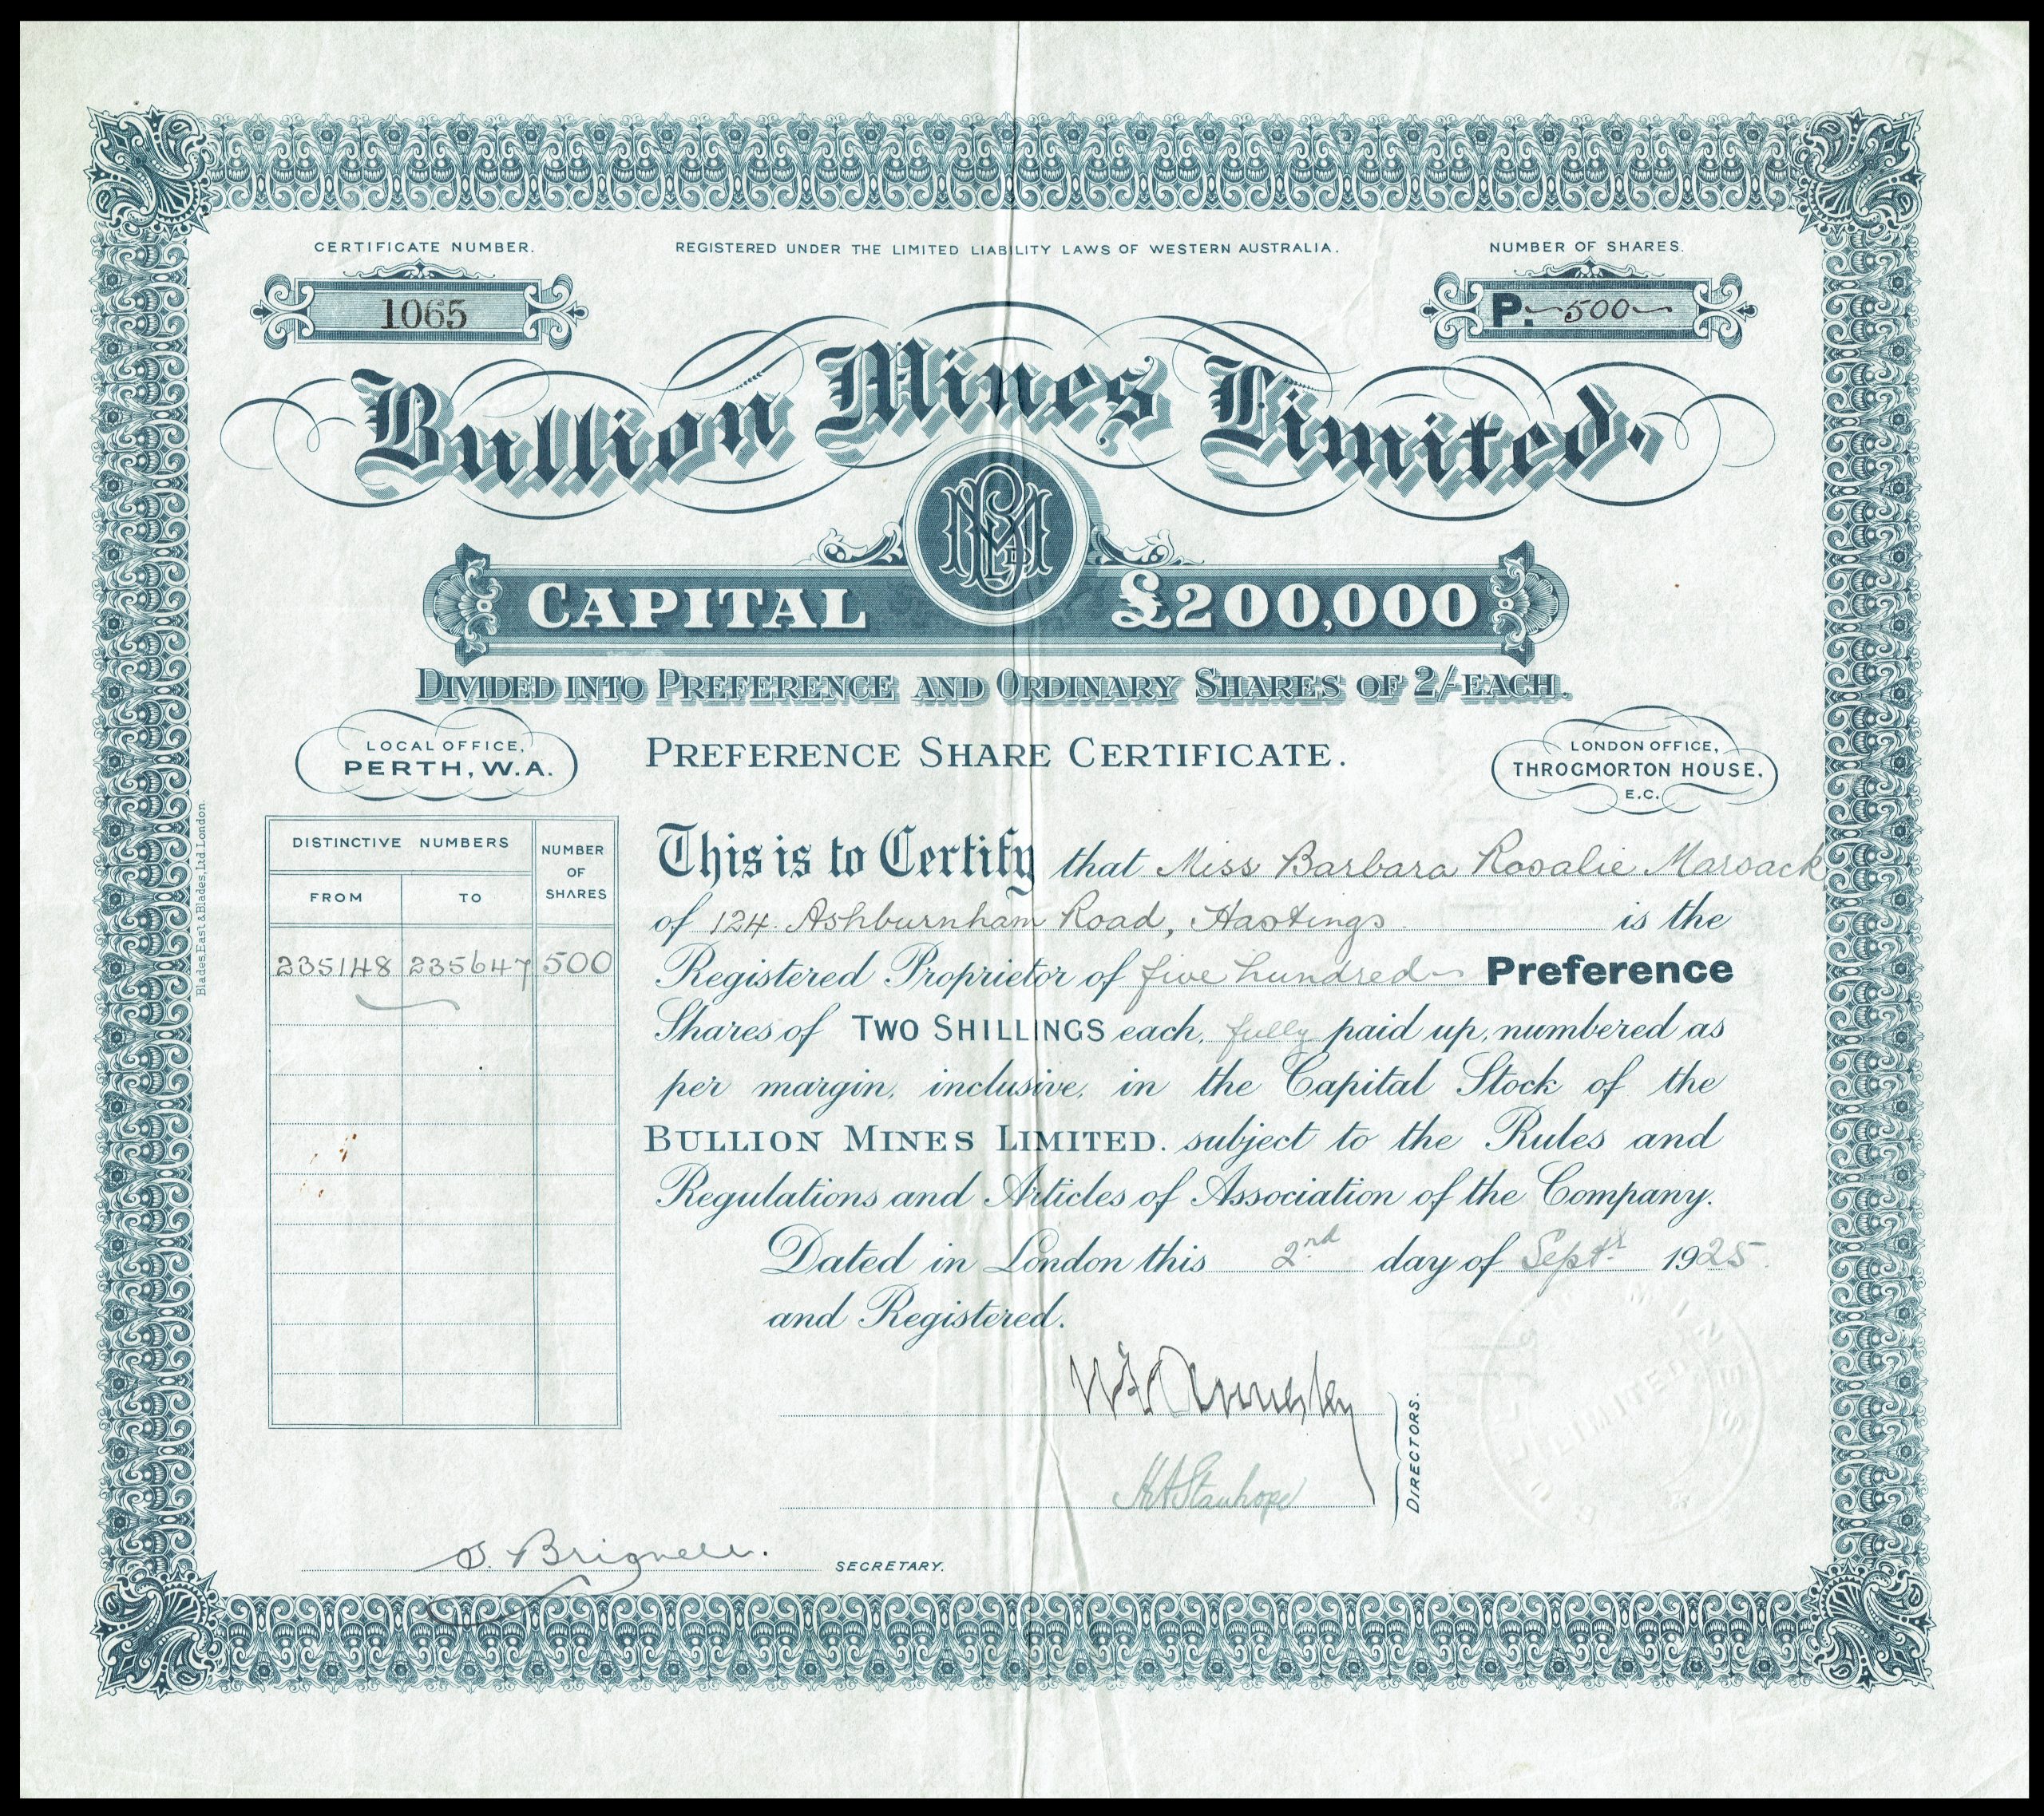 CERTIFICATE NUMBER.
REGISTERED UNDER THE LIMITED LIABILITY LAWS OF WESTERN AUSTRALIA.
NUMBER OF SHARES.
1065
P. 500
Bullion Mines Limited.
BML
CAPITAL £200,000
DIVIDED INTO PREFERENCE AND ORDINARY SHARES OF 2/- EACH.
LOCAL OFFICE,
PERTH, W.A.
PREFERENCE SHARE CERTIFICATE.
LONDON OFFICE,
THROGMORTON HOUSE,
E.C.
Blades, East & Blades, Ltd. London.
DISTINCTIVE NUMBERS
NUMBER OF SHARES
FROM TO
235148 235647 500
This is to Certify that Miss Barbara Rosalie Marsack
of 124 Ashburnham Road, Hastings is the
Registered Proprietor of five hundred Preference
Shares of TWO SHILLINGS each, fully paid up, numbered as
per margin, inclusive, in the Capital Stock of the
BULLION MINES LIMITED. subject to the Rules and
Regulations and Articles of Association of the Company.
Dated in London this 2nd day of Septr 1925.
and Registered.
HA Stanhope
DIRECTORS.
S. Brignell.
SECRETARY.
BULLION MINES
LIMITED